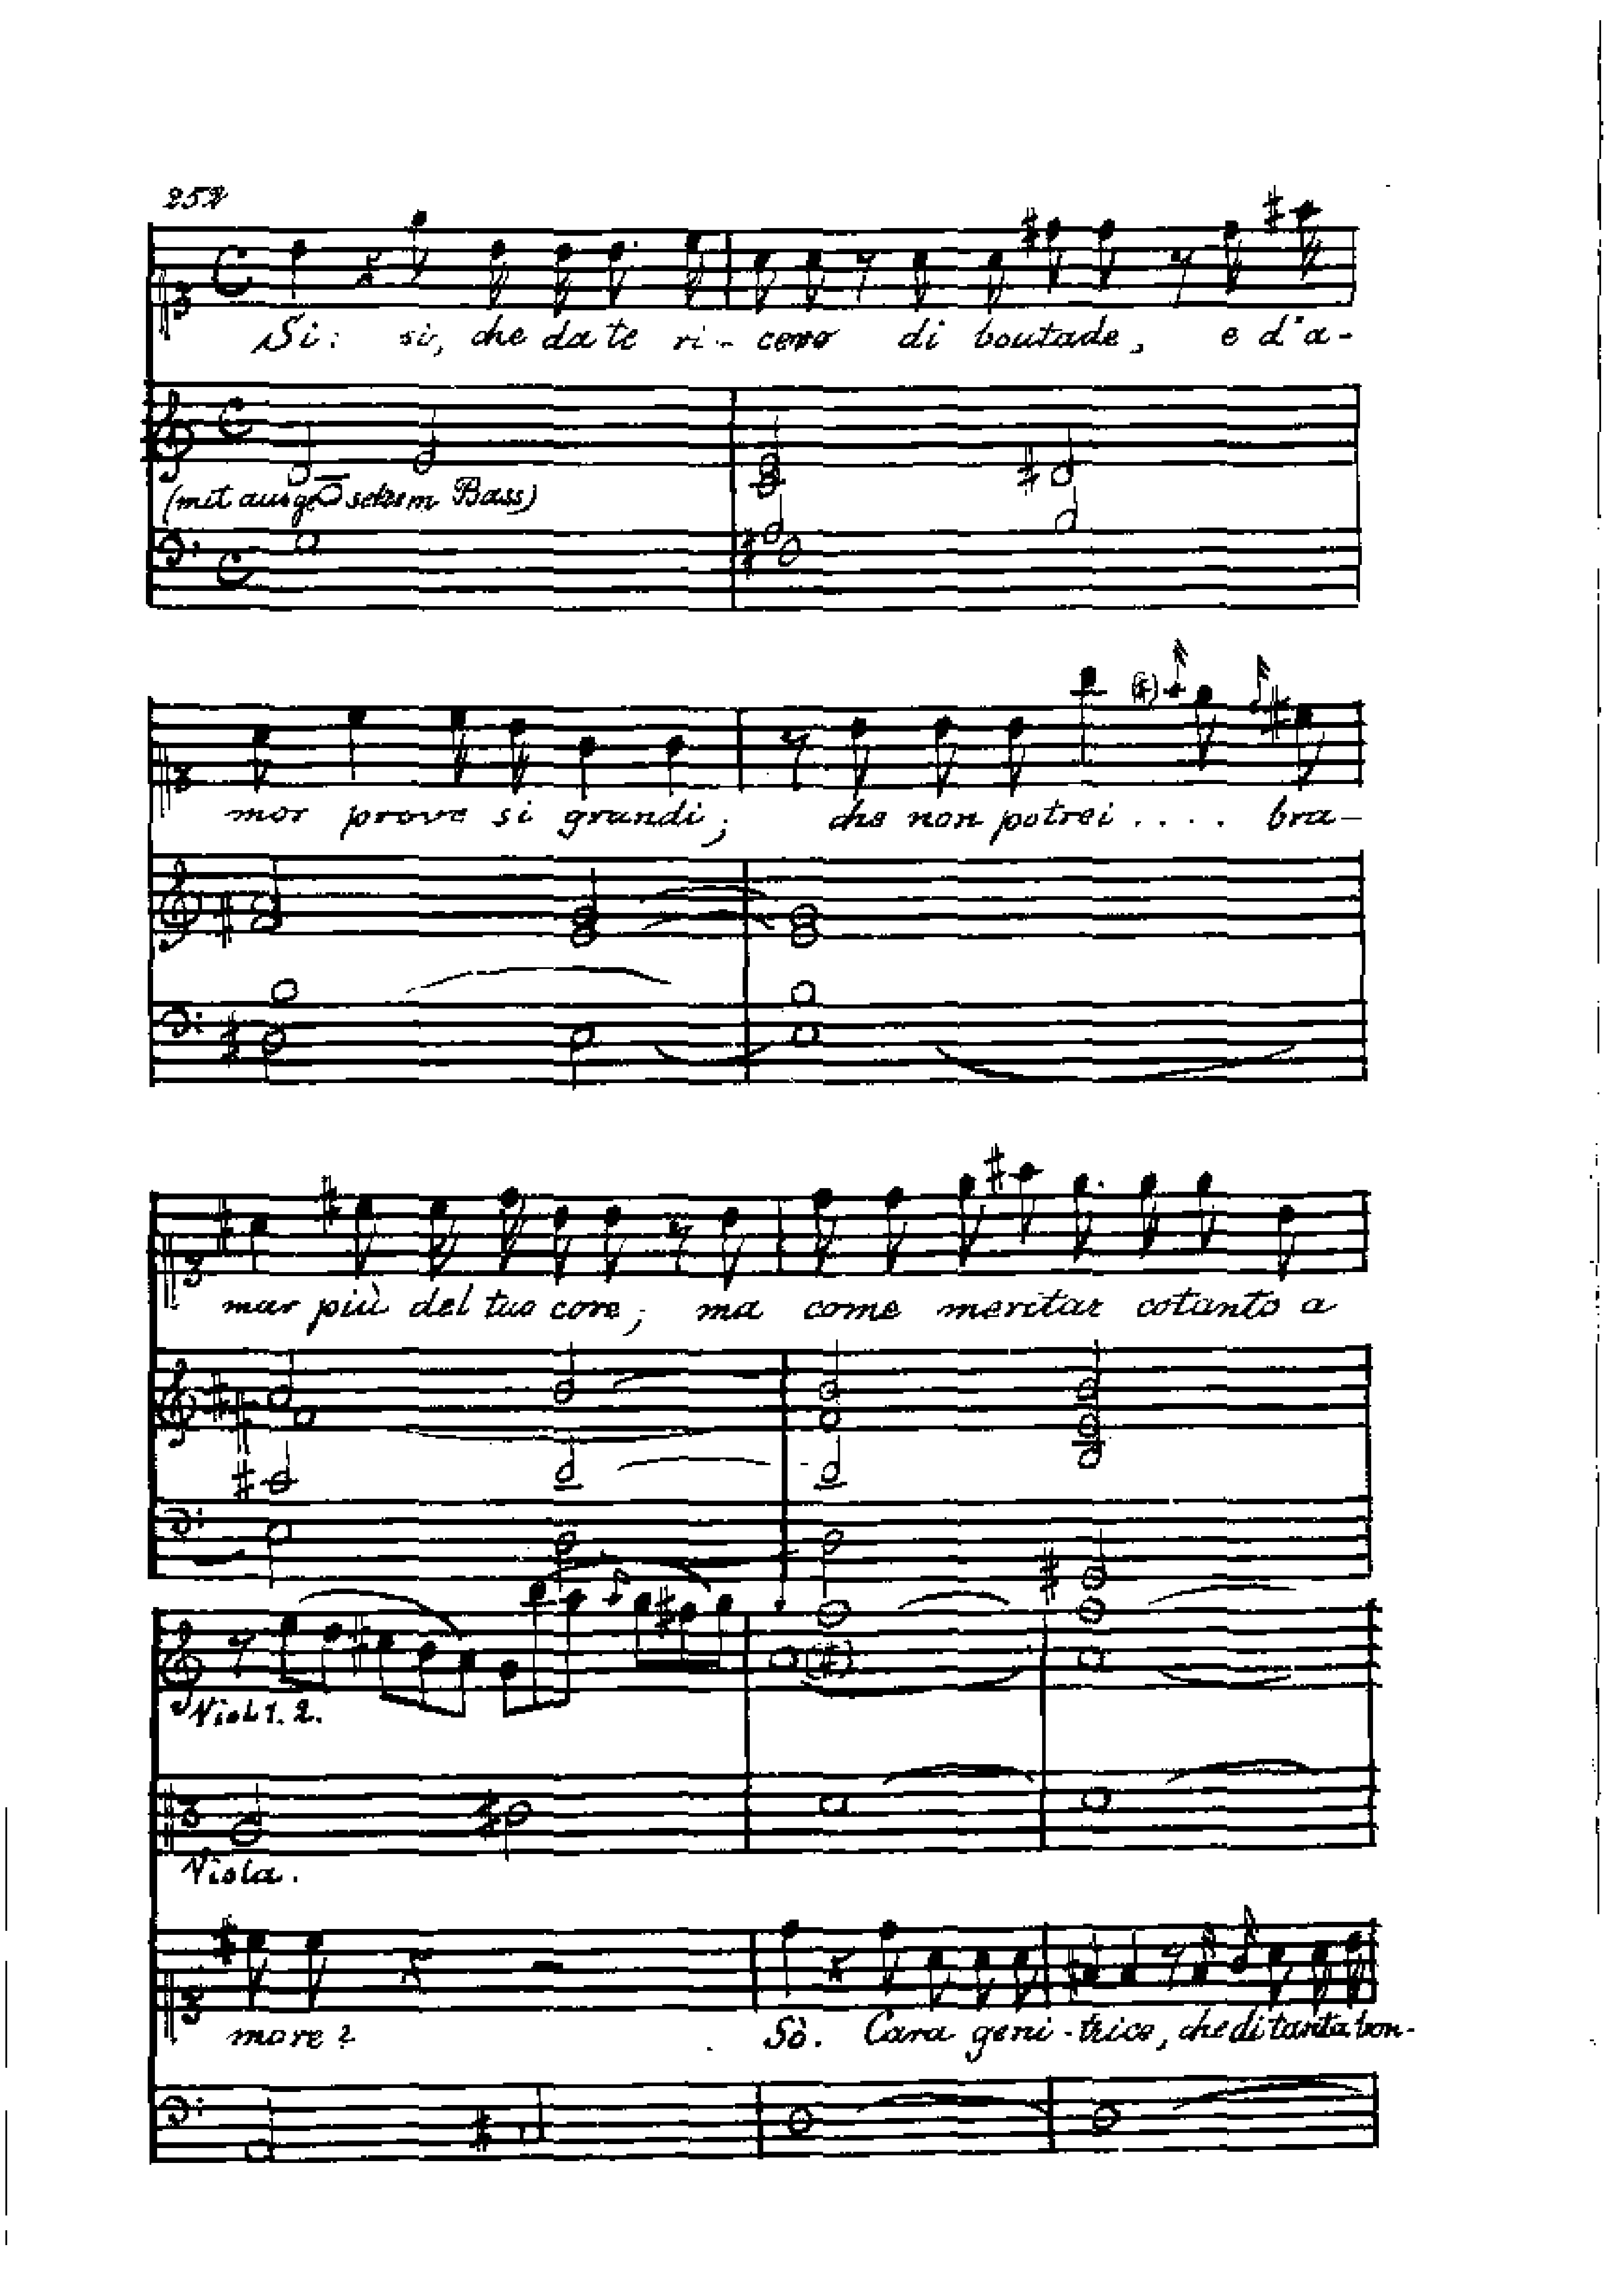 252
Si: si, che da te ri - cevo di boutade, e d'a-
(mit ausgesetztem Bass)
mor prove si grandi; che non potrei .... bra-
mar più del tuo core; ma come meritar cotanto a
Viol 1. 2.
Viola.
more? Sò. Cara geni-trice, che di tanta bon-